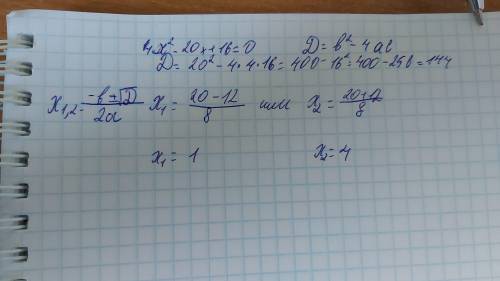 4x² - 20x + 16 = 0 D = b² - 4ac
D = 20² - 4·4·16 = 400 - 16² = 400 - 256 = 144
x₁,₂ = (-b ± √D)/2a x₁ = (20 - 12)/8 или x₂ = (20+12)/8
x₁ = 1 x₂ = 4